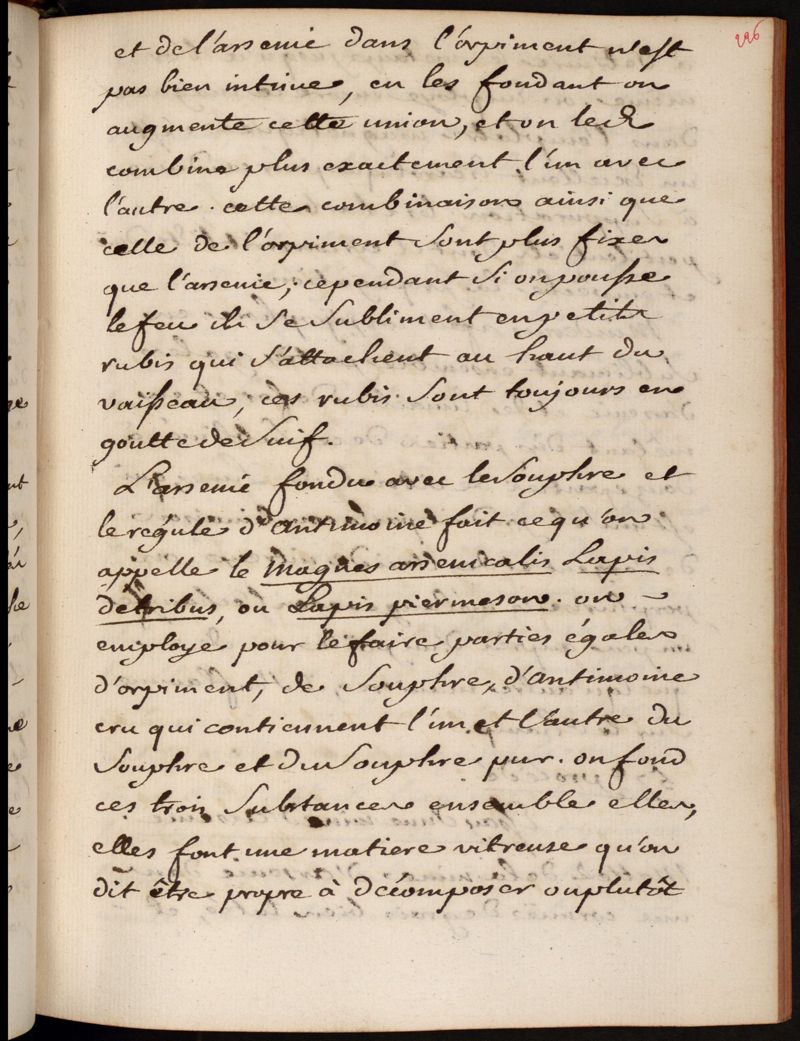 226
et de l'arsenic dans l'orpiment n'est
pas bien intime, en les fondant on
augmente cette union, et on les
combine plus exactement l'un avec
l'autre. cette combinaison ainsi que
celle de l'orpiment sont plus fixes
que l'arsenic, cependant si on pousse
le feu ils se subliment en petits
rubis qui s'attachent au haut du
vaisseau, ces rubis sont toujours en
goutte de suif.
L'arsenic fondu avec le souphre et
le régule d'antimoine fait ce qu'on
appelle le magnes arsenicalis Lapis
de tribus, ou Lapis piermeson. on
employe pour le faire parties égales
d'orpiment, de souphre, d'antimoine
cru qui contiennent l'un et l'autre du
souphre et du souphre pur. on fond
ces trois substances ensemble elles,
elles font une matiere vitreuse qu'on
dit être propre à décomposer ou plutôt